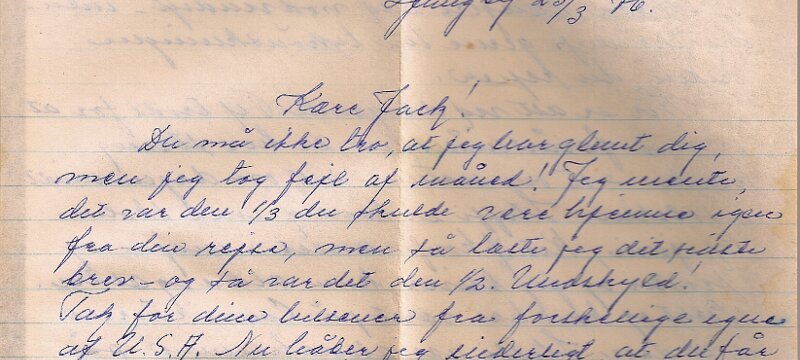 23/3 76.
Kære Jack!
Du må ikke tro, at jeg har glemt dig,
men jeg tog fejl af måned! Jeg mente,
det var den 1/3 du skulde være hjemme igen
fra din rejse, men så læste jeg dit sidste
brev – og så var det den 1/2. Undskyld!
Tak for dine hilsener fra forskellige egne
af U.S.A. Nu håber jeg inderligt at du får